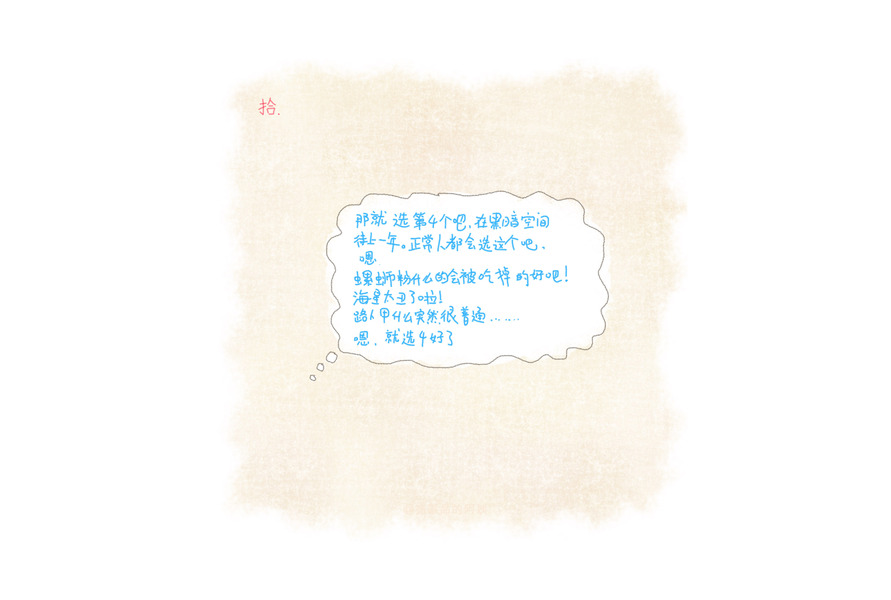 拾.
那就选第4个吧,在黑暗空间
待上一年。正常人都会选这个吧、
嗯
螺蛳粉什么的会被吃掉的好吧!
海星太丑了啦!
路人甲什么突然很普通......
嗯,就选4好了